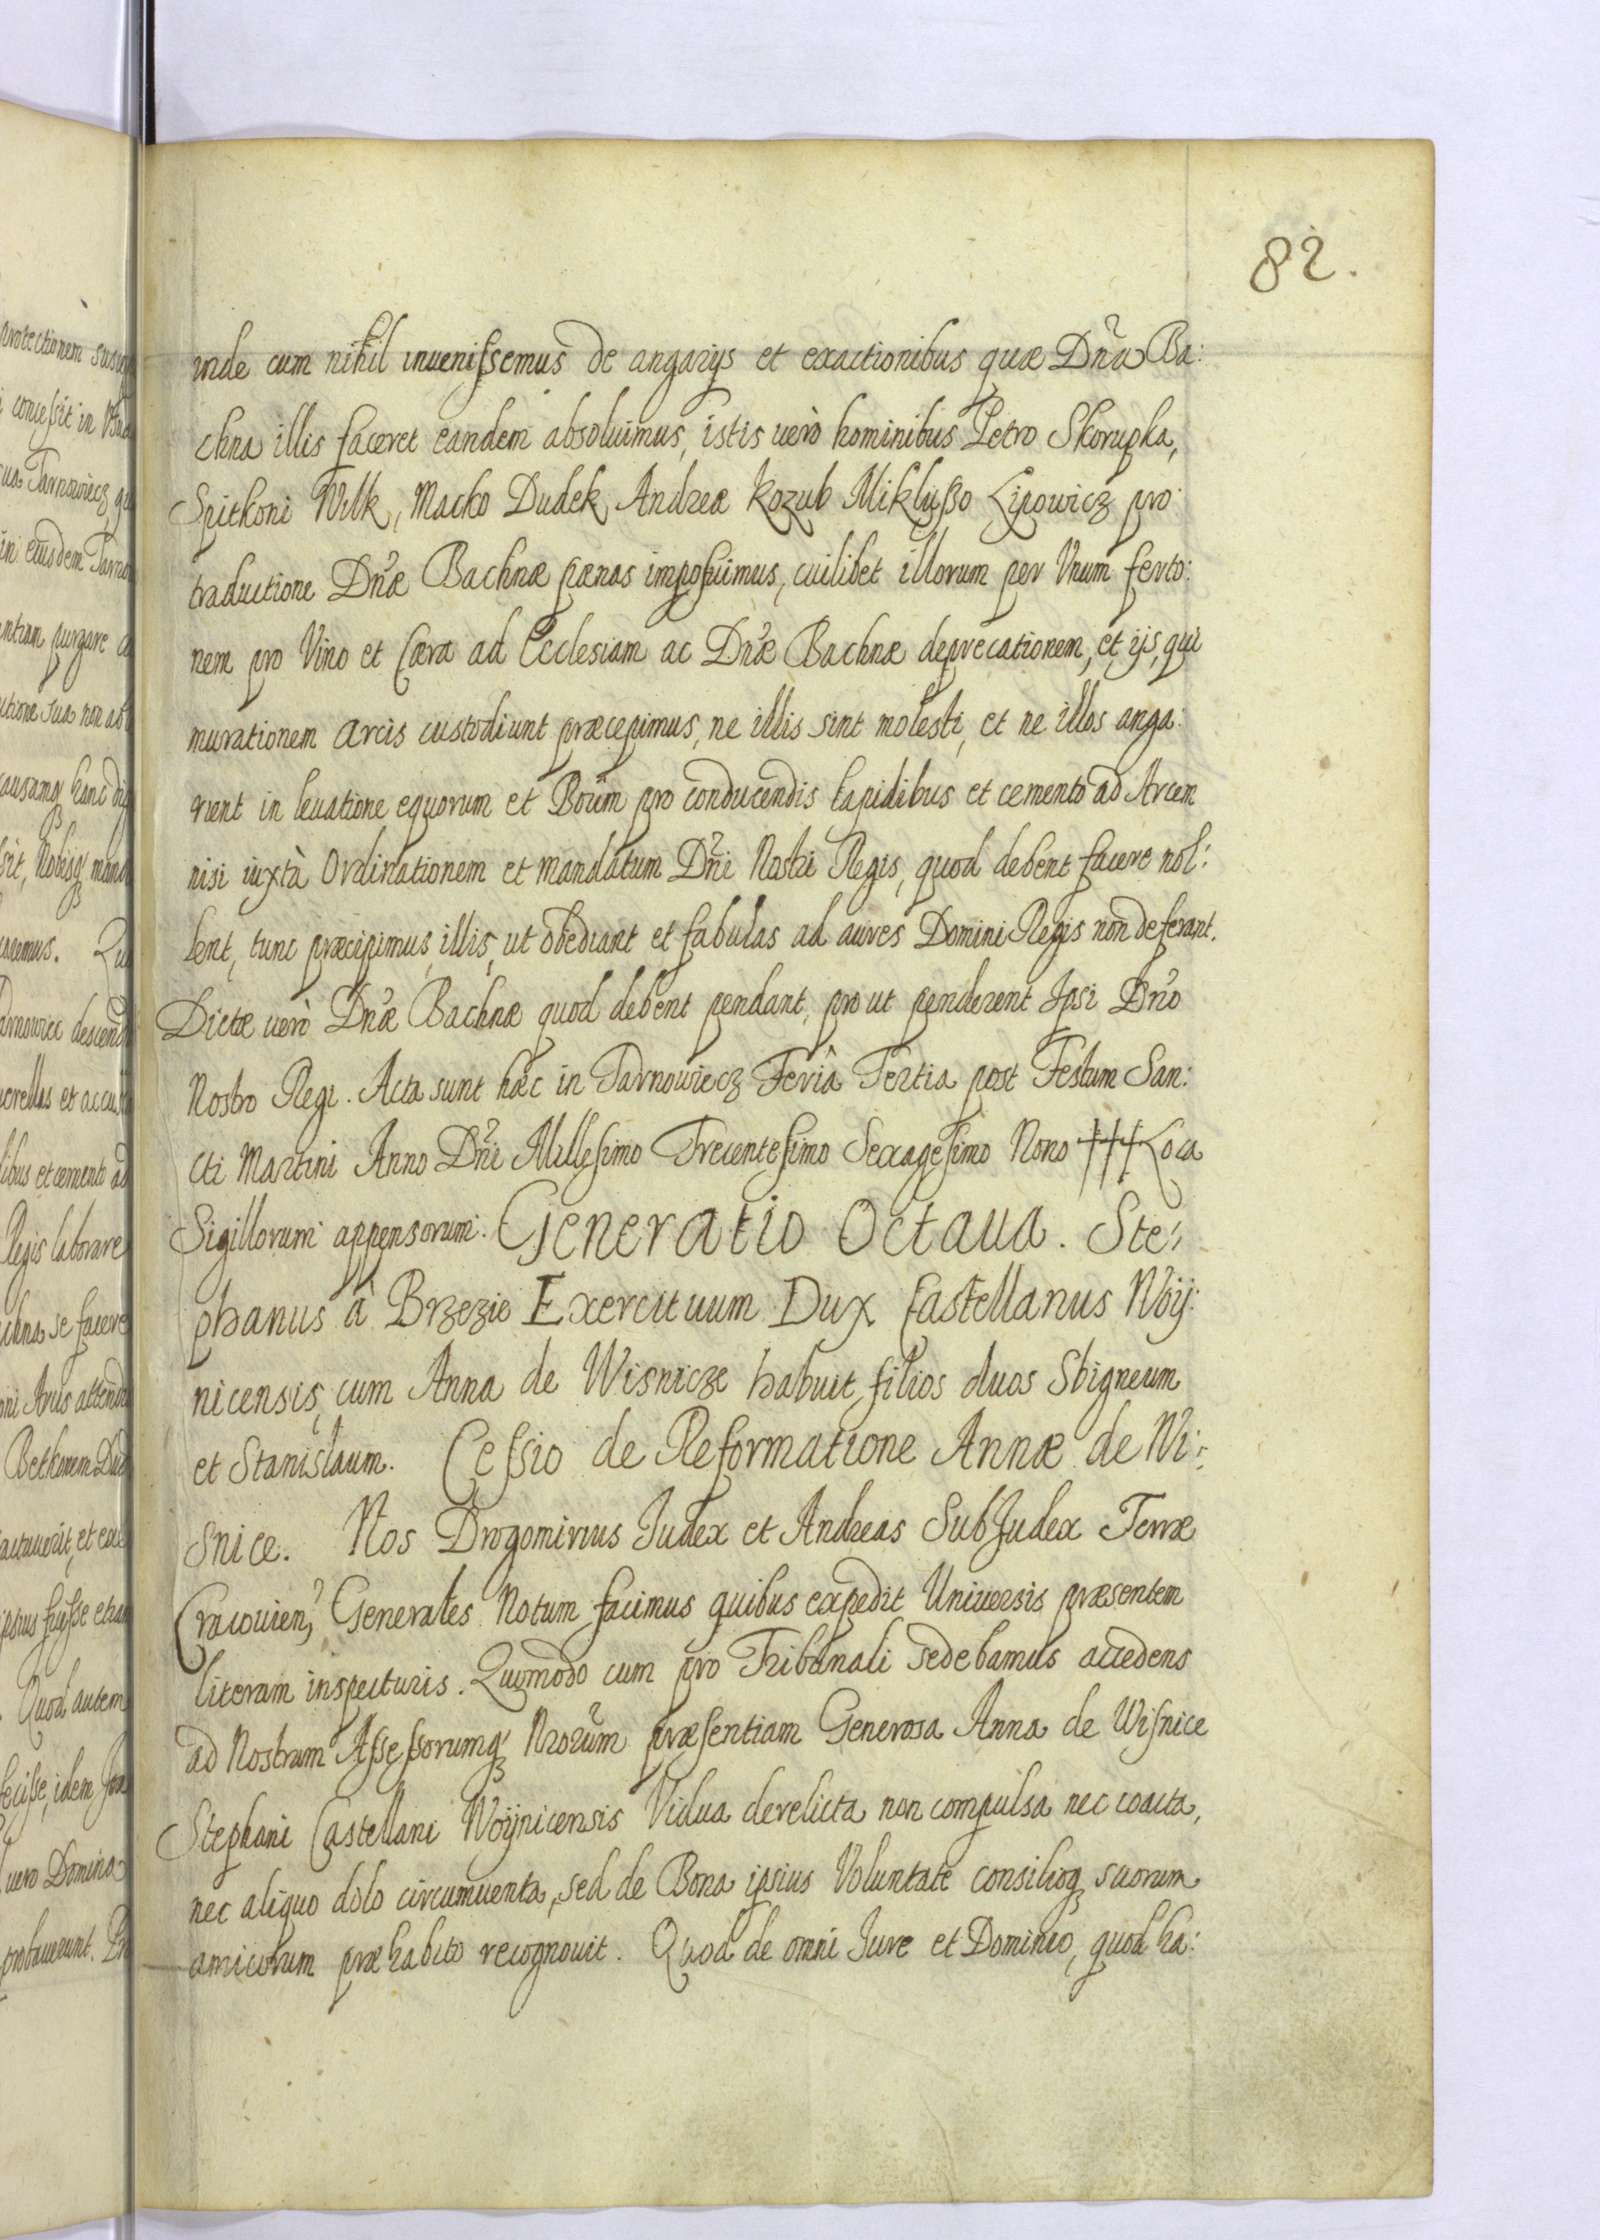 82.
inde cum nihil inuenissemus de angarijs et exactionibus quæ Dn̄a Ba:
chna illis faceret eandem absoluimus, istis uerò hominibus Petro Skorupka,
Spitkoni Wilk, Macko Dudek Andreæ Kozub Miklusso Lipowicz pro
traductione Dn̄æ Bachnæ pænas imposuimus, cuilibet illorum per Vnum ferto:
nem pro Vino et Cæra ad Ecclesiam ac Dn̄æ Bachnæ deprecationem, et ijs, qui
murationem arcis custodiunt præcepimus, ne illis sint molesti, et ne illos anga:
rient in leuatione equorum et Boûm pro conducendis lapidibus et cemento ad Arcem
nisi iuxtà Ordinationem et mandatum Dn̄i Nostri Regis, quod debent facere nol:
lent, tunc præcipimus illis, ut obediant et fabulas ad aures Domini Regis non deferant.
Dictæ uerò Dn̄æ Bachnæ quod debent pendant, pro ut penderent Ipsi Dn̄o
Nostro Regi. Acta sunt hæc in Tarnowiecz Feriâ Tertia post Festum San:
cti Martini Anno Dn̄i Millesimo Trecentesimo Sexagesimo Nono ††† Loca
Sigillorum appensorum. Generatio Octaua. Ste:
phanus à Brzezie Exercituum Dux Castellanus Woÿ:
nicensis, cum Anna de Wisnicze habuit filios duos Sbigneum
et Stanislaum. Cessio de Reformatione Annæ de Wi:
snice. Nos Drogomirius Judex et Andreas SubJudex Terræ
Cracouien, Generales Notum facimus quibus expedit Uniuersis præsentem
literam inspecturis. Quomodo cum pro Tribunali sedebamus accedens
ad Nostram Assessorumq̨ Nrorūm præsentiam Generosa Anna de Wisnice
Stephani Castellani Woÿnicensis Vidua derelicta non compulsa nec coacta,
nec aliquo dolo circumuenta, sed de Bona ipsius Voluntate consilioq̨ suorum
amicorum præhabito recognouit. Quod de omni Jure et Dominio, quod ha: